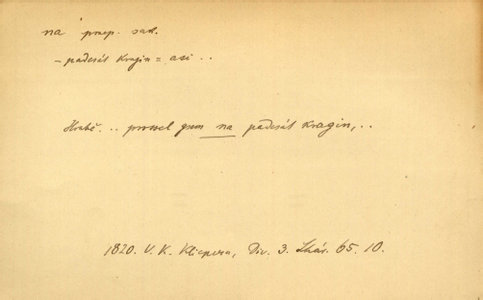 na prep. sak.
– padesát Kragin = asi ..
Hrabě... prossel gsem na padesát Kragin, ..
1820. V. K. Klicpera, Div. 3. Lhář. 65. 10.